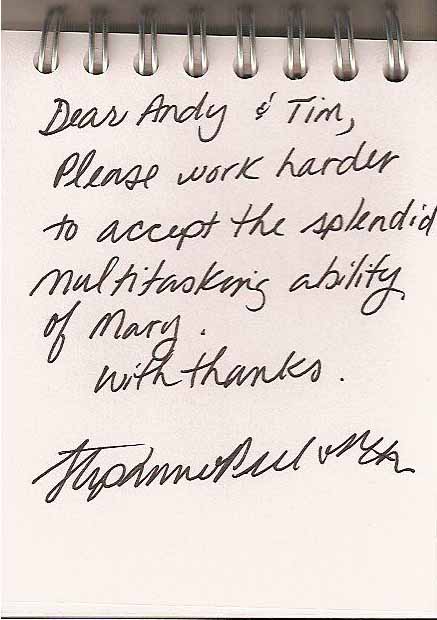 Dear Andy & Tim,
Please work harder
to accept the splendid
multitasking ability
of Mary.
with thanks.